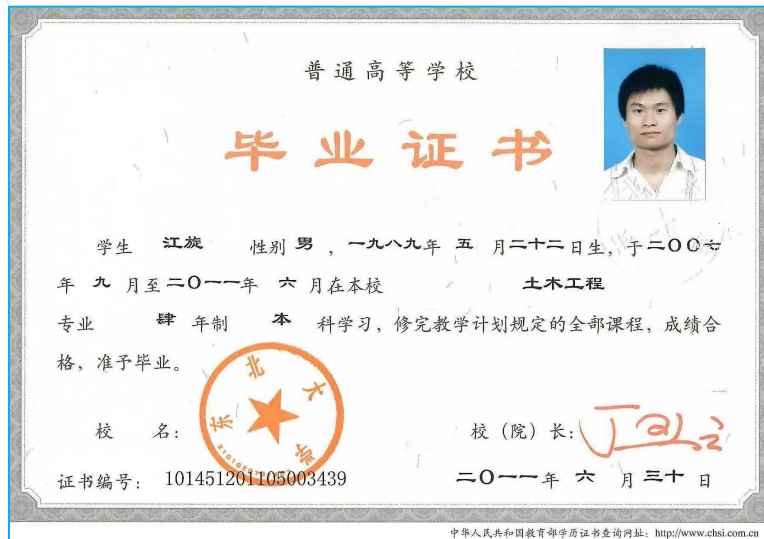 普通高等学校
毕业证书
学生 江旋 性别 男 ，一九八九年 五 月二十二日生，于二〇〇七
年 九 月至二〇一一年 六 月在本校 土木工程
专业 肆 年制 本 科学习，修完教学计划规定的全部课程，成绩合
格，准予毕业。
东北大学
校 名： 校（院）长：
证书编号：101451201105003439 二〇一一年 六 月 三十 日
中华人民共和国教育部学历证书查询网址：http://www.chsi.com.cn